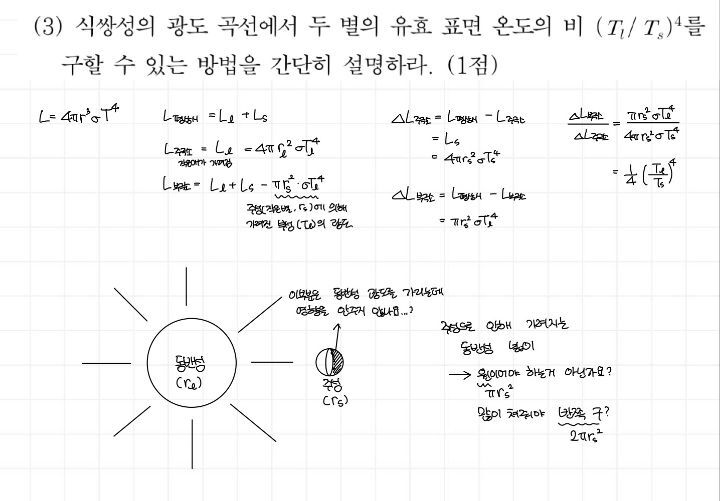 (3) 식쌍성의 광도 곡선에서 두 별의 유효 표면 온도의 비 (T_l / T_s)^4를
구할 수 있는 방법을 간단히 설명하라. (1점)
L = 4πr^2 σT^4
L평상시 = L_l + L_s
L주극소 = L_l = 4πr_l^2 σT_l^4
작은별이 가려짐
L부극소 = L_l + L_s - πr_s^2 · σT_l^4
주성(작은별, r_s)에 의해
가려진 부성(T_l)의 광도
ΔL주극소 = L평상시 - L주극소
= L_s
= 4πr_s^2 σT_s^4
ΔL부극소 = L평상시 - L부극소
= πr_s^2 σT_l^4
ΔL부극소 / ΔL주극소 = πr_s^2 σT_l^4 / 4πr_s^2 σT_s^4
= 1/4 (T_l / T_s)^4
이부분은 동반성 광도를 가리는데
영향을 안주지 않나요...?
동반성
(r_l)
주성
(r_s)
주성으로 인해 가려지는
동반성
→ 원이어야 하는거 아닌가요?
πr_s^2
많이 쳐줘야 반쪽 구?
2πr_s^2